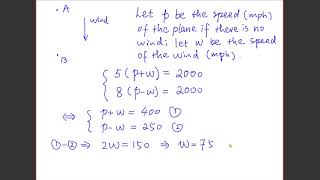 • A
wind
• B
Let p be the speed (mph)
of the plane if there is no
wind; let w be the speed
of the wind (mph).
{ 5(p+w) = 2000
8(p-w) = 2000
⇔ { p+w = 400 ①
p-w = 250 ②
①-② ⇒ 2w = 150 ⇒ w = 75